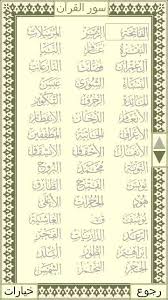 سور القرآن
الفاتحة الزمر المرسلات
البقرة غافر النبأ
آل عمران فصلت النازعات
النساء الشورى عبس
المائدة الزخرف التكوير
الأنعام الدخان الانفطار
الأعراف الجاثية المطففين
الأنفال الأحقاف الانشقاق
التوبة محمد البروج
يونس الفتح الطارق
هود الحجرات الأعلى
يوسف ق الغاشية
الرعد الذاريات الفجر
إبراهيم الطور البلد
الحجر النجم الشمس
رجوع خيارات